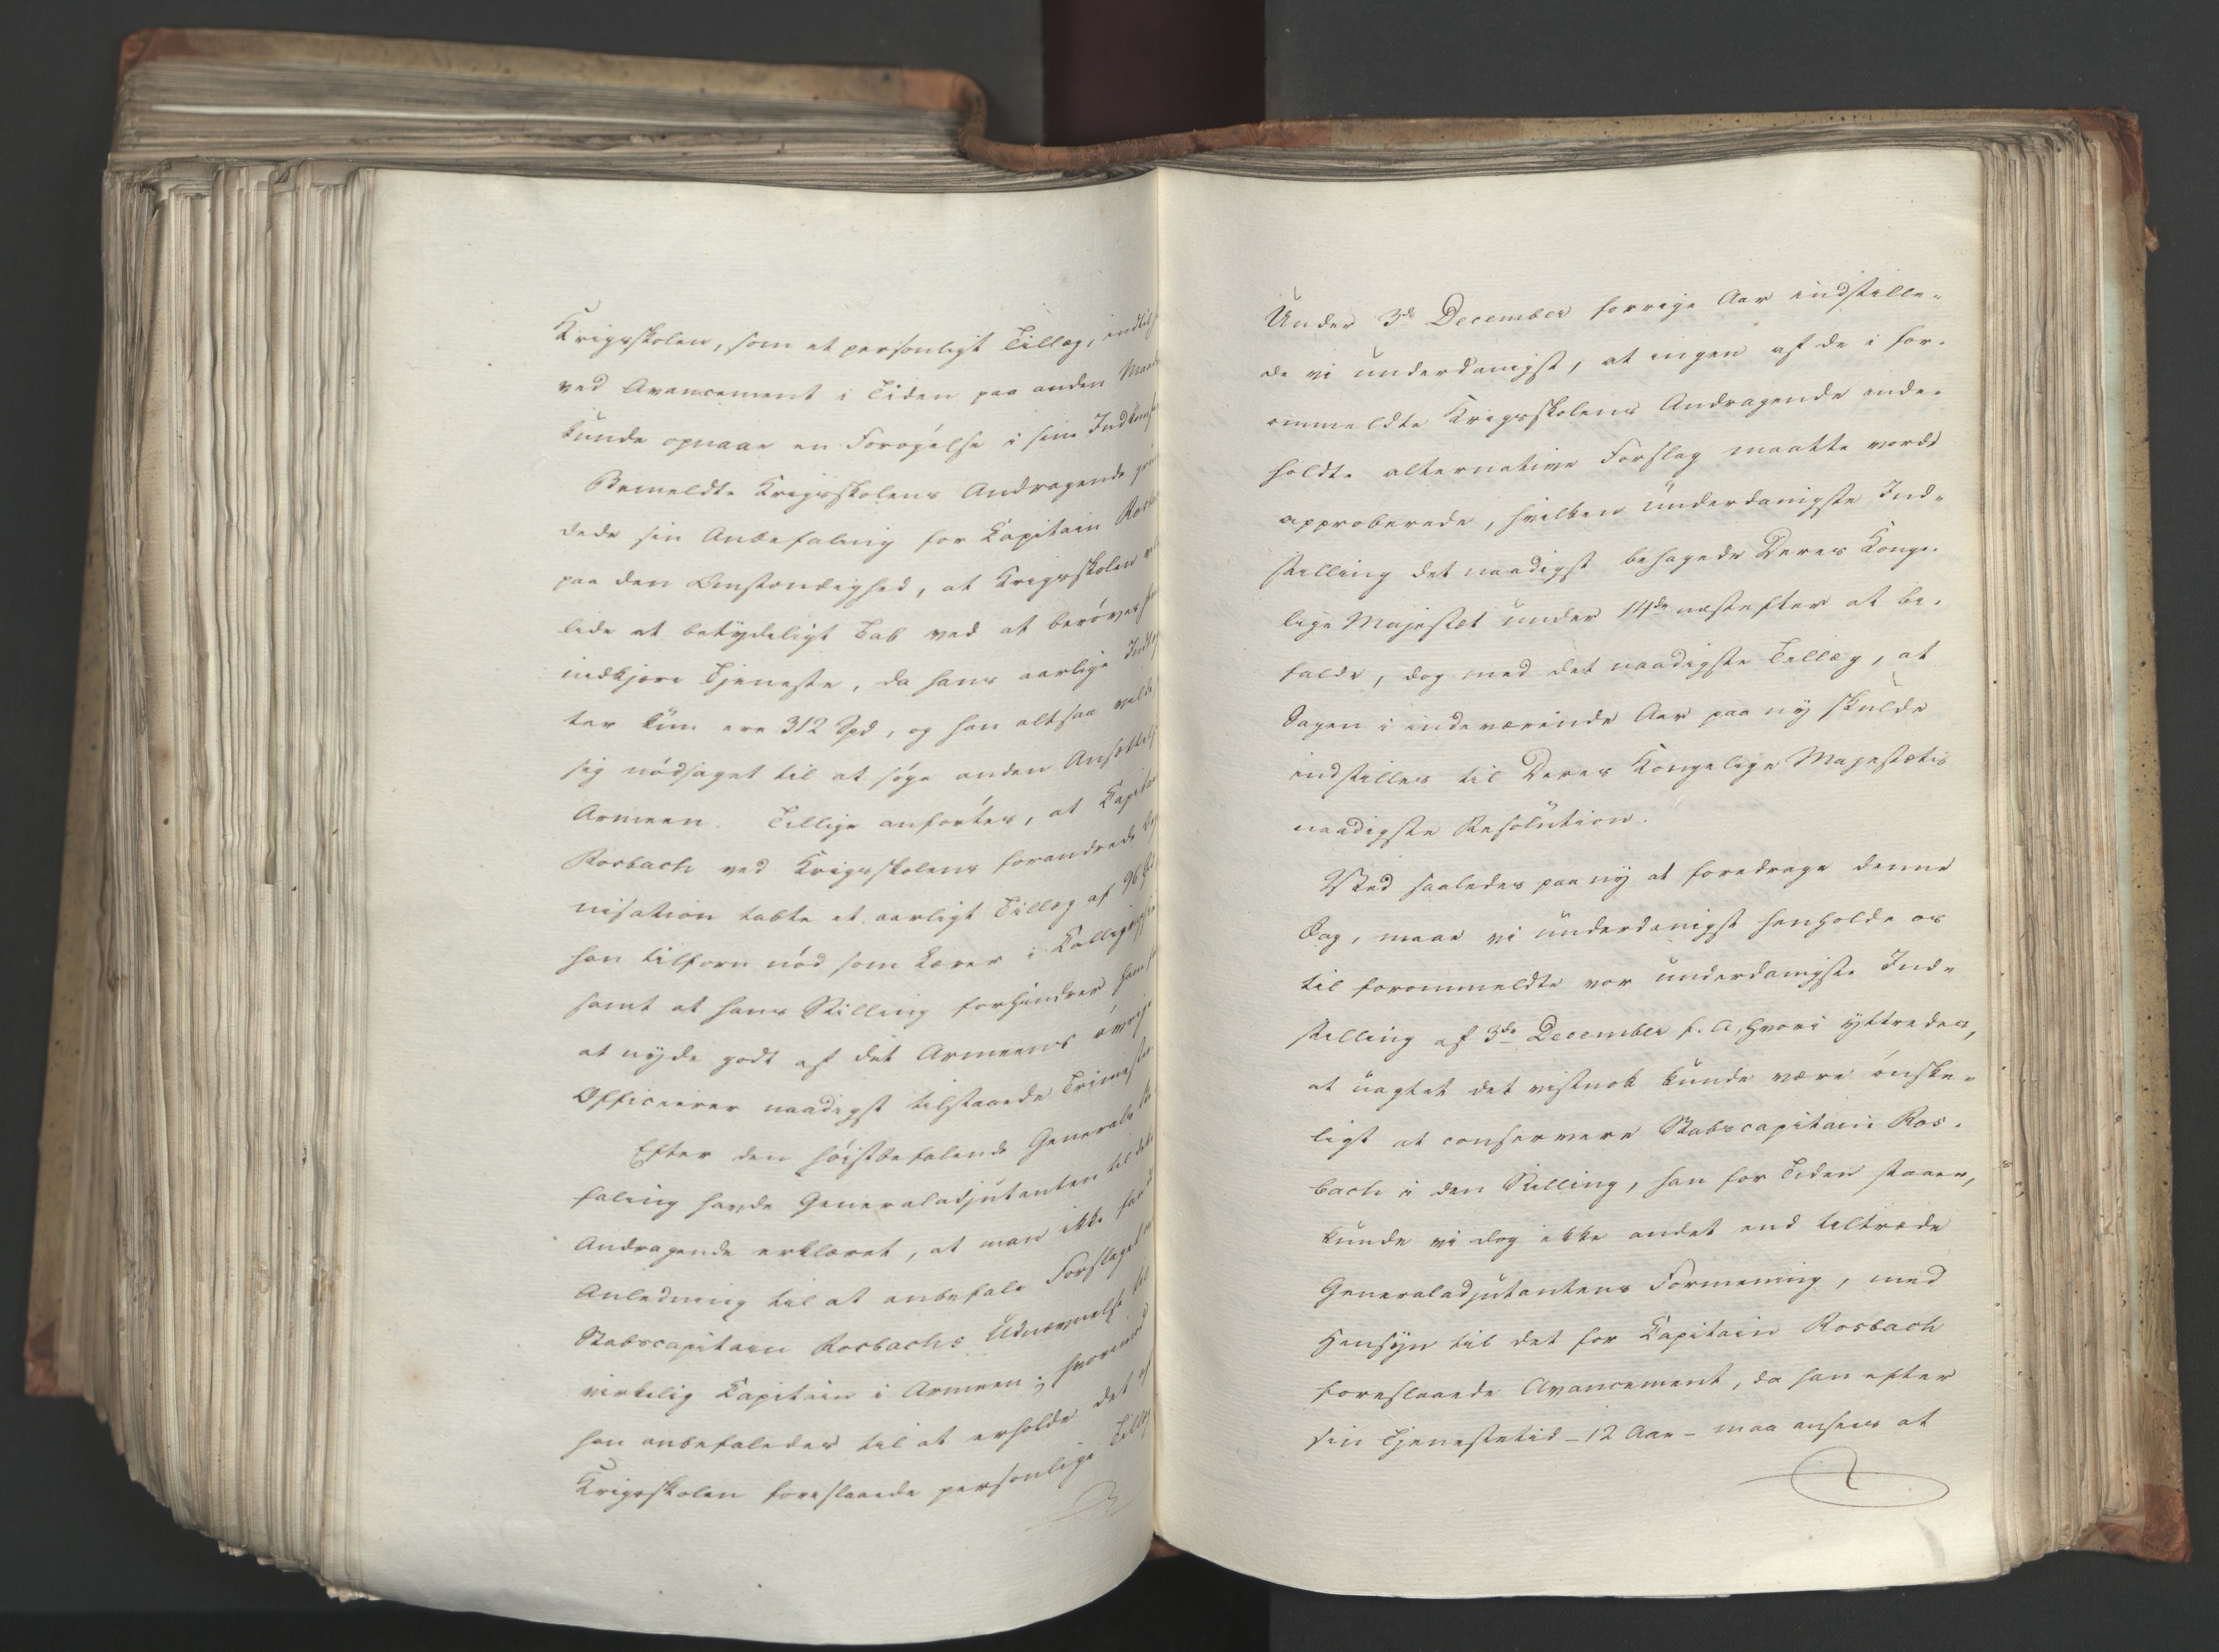 Krigsskolen, som et personligt Tillæg, indtil
ved Avancement i Tiden paa anden Maade
kunde opnaae en Forøgelse i sine Indkomst
Bemeldte Krigsskolens Andragende
dede sin Anbefaling for Capitain Ros
paa den Omstændighed, at Krigsskolen
lide et betydeligt Tab ved at berøves
nidkjære Tjeneste, da hans aarlige Indtæg
ter kun ere 312 Spd, og han altsaa
sig nødsaget til at søge anden Ansættel
Armeen. Tillige anførtes, at Capitain
Rosbach ved Krigsskolens forandrede Orga
nisation tabte et aarligt Tillæg af 96
han tilforn nød som Lærer i
samt at hans Stilling forhindrer ham
at nyde godt af det Armeens øvrige
Officierer naadigst tilstaaede
Efter den høistbefalende Generals
faling havde Generaladjutanten til dette
Andragende erklæret, at man ikke
Anledning til at anbefale Forslaget
Stabscapitain Rosbachs Udnævnelse til
virkelig Capitain i Armeen; hvorimod
han anbefaledes til at erholde det af
Krigsskolen foreslaaede personlige Tillæg
Under 3de December forrige Aar indstille-
de vi underdanigst, at ingen af de i for-
ommeldte Krigsskolens Andragende inde-
holdte alternative Forslag maatte vorde
approberede, hvilken underdanigste Ind-
stilling det naadigst behagede Deres Konge-
lige Majestæt under 14de næstefter at bi-
falde, dog med det naadigste Tillæg, at
Sagen i indeværende Aar paa ny skulde
indstilles til Deres Kongelige Majestæts
naadigste Resolution.
Ved saaledes paa ny at foredrage denne
Sag, maae vi underdanigst henholde os
til forommeldte vor underdanigste Ind-
stilling af 3de December f. A, hvori yttredes,
at uagtet det vistnok kunde være ønske-
ligt at conservere Stabscapitain Ros-
bach i den Stilling, han for Tiden staaer,
kunde vi dog ikke andet end tiltræde
Generaladjutantens Formening, med
Hensyn til det for Capitain Rosbach
foreslaaede Avancement, da han efter
sin Tjenestetid - 12 Aar - maa ansees at